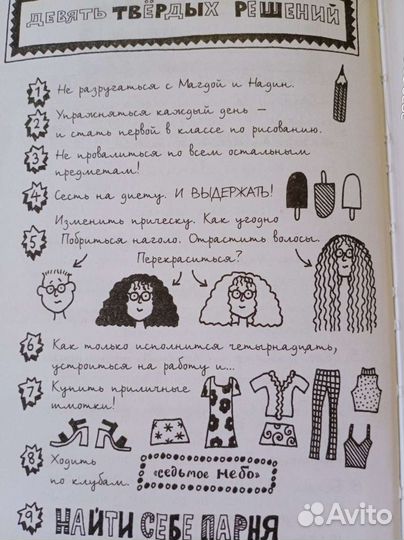 ДЕВЯТЬ ТВЁРДЫХ РЕШЕНИЙ
1 Не разругаться с Магдой и Надин.
2 Упражняться каждый день —
и стать первой в классе по рисованию.
3 Не провалиться по всем остальным
предметам!
4 Сесть на диету. И ВЫДЕРЖАТЬ!
Изменить прическу. Как угодно
5 Побриться наголо. Отрастить волосы.
Перекраситься?
6 Как только исполнится четырнадцать,
устроиться на работу и...
7 Купить приличные
шмотки!
8 Ходить
по клубам.
«седьмое небо»
9 НАЙТИ СЕБЕ ПАРНЯ
Avito